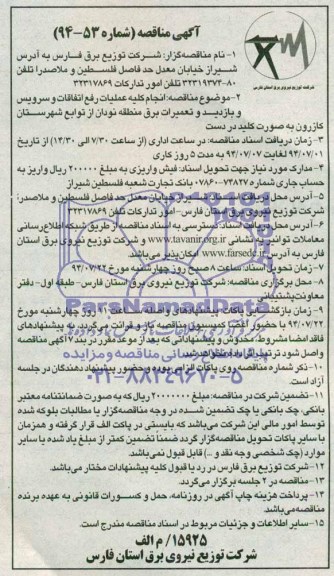 آگهی مناقصه (شماره ۵۳-۹۴)
شرکت توزیع نیروی برق استان فارس
۱- نام مناقصه‌گزار: شرکت توزیع برق فارس به آدرس
شیراز خیابان معدل حد فاصل فلسطین و ملاصدرا تلفن
۸۰-۳۲۳۱۹۳۷۴ تلفن امور تدارکات ۳۲۳۱۷۸۶۹
۲- موضوع مناقصه: انجام کلیه عملیات رفع اتفاقات و سرویس
و بازدید و تعمیرات برق منطقه نودان از توابع شهرستان
کازرون به صورت کلید در دست
۳- زمان دریافت اسناد مناقصه: در ساعت اداری (از ساعت ۷/۳۰ الی ۱۴/۳۰) از تاریخ
۹۴/۰۷/۰۱ لغایت ۹۴/۰۷/۰۷ به مدت ۵ روز کاری
۴- مدارک مورد نیاز جهت تحویل اسناد: فیش واریزی به مبلغ ۲۰۰۰۰۰ ریال واریز به
حساب جاری شماره ۰۷۸۶۰۰۷۳۸۲۷ بانک تجارت شعبه فلسطین شیراز
۵- آدرس محل دریافت اسناد: شیراز خیابان معدل حد فاصل فلسطین و ملاصدرا
شرکت توزیع نیروی برق استان فارس- امور تدارکات تلفن ۳۲۳۱۷۸۶۹
۶- آدرس محل دریافت اسناد: دسترسی به اسناد مناقصه از طریق شبکه اطلاع‌رسانی
معاملات توانیر به نشانی www.tavanir.org.ir و شرکت توزیع نیروی برق استان
فارس به آدرس www.farsedc.ir امکان‌پذیر می‌باشد
۷- زمان تحویل اسناد: ساعت ۸ صبح روز چهارشنبه مورخ ۹۴/۰۷/۲۲
۸- محل برگزاری مناقصه: شرکت توزیع نیروی برق استان فارس- طبقه اول- دفتر
معاونت پشتیبانی
۹- زمان بازگشایی پاکات: پیشنهادهای واصله ساعت ۹ روز چهارشنبه مورخ
۹۴/۰۷/۲۲ با حضور اعضاء کمیسیون مناقصه باز و قرائت می‌گردد. به پیشنهادهای
فاقد امضا مشروط، مخدوش و پیشنهاداتی که بعد از موعد مقرر در بند ۷ آگهی مناقصه
واصل شود ترتیب اثر داده نخواهد شد.
۱۰- ذکر شماره مناقصه روی پاکات الزامی بوده و حضور پیشنهاد دهندگان در جلسه
آزاد است.
۱۱- تضمین شرکت در مناقصه: ۲۰۰۰۰۰۰۰ ریال که به صورت ضمانتنامه معتبر
بانکی، چک بانکی یا چک تضمین شده در وجه مناقصه‌گزار یا مطالبات بلوکه شده
توسط امور مالی این شرکت می‌باشد که بایستی در پاکت الف قرار گرفته و همزمان
با سایر پاکات تحویل مناقصه‌گزار گردد ضمناً تضمین کمتر از مبلغ یاد شده یا سایر
موارد (چک شخصی وجه نقد و ...) قابل قبول نمی‌باشد.
۱۲- شرکت توزیع برق فارس در رد یا قبول کلیه پیشنهادات مختار می‌باشد.
۱۳- مناقصه در ۲ جلسه برگزار می‌گردد.
۱۴- پرداخت هزینه چاپ آگهی در روزنامه، حمل و کسورات قانونی به عهده برنده
مناقصه می‌باشد.
۱۵- سایر اطلاعات و جزئیات مربوط در اسناد مناقصه مندرج است.
۱۵۹۲۵/ م الف
شرکت توزیع نیروی برق استان فارس
ParsNamadData
پایگاه اطلاع رسانی مناقصه و مزایده
۰۲۱-۸۸۳۴۹۶۷۰-۵